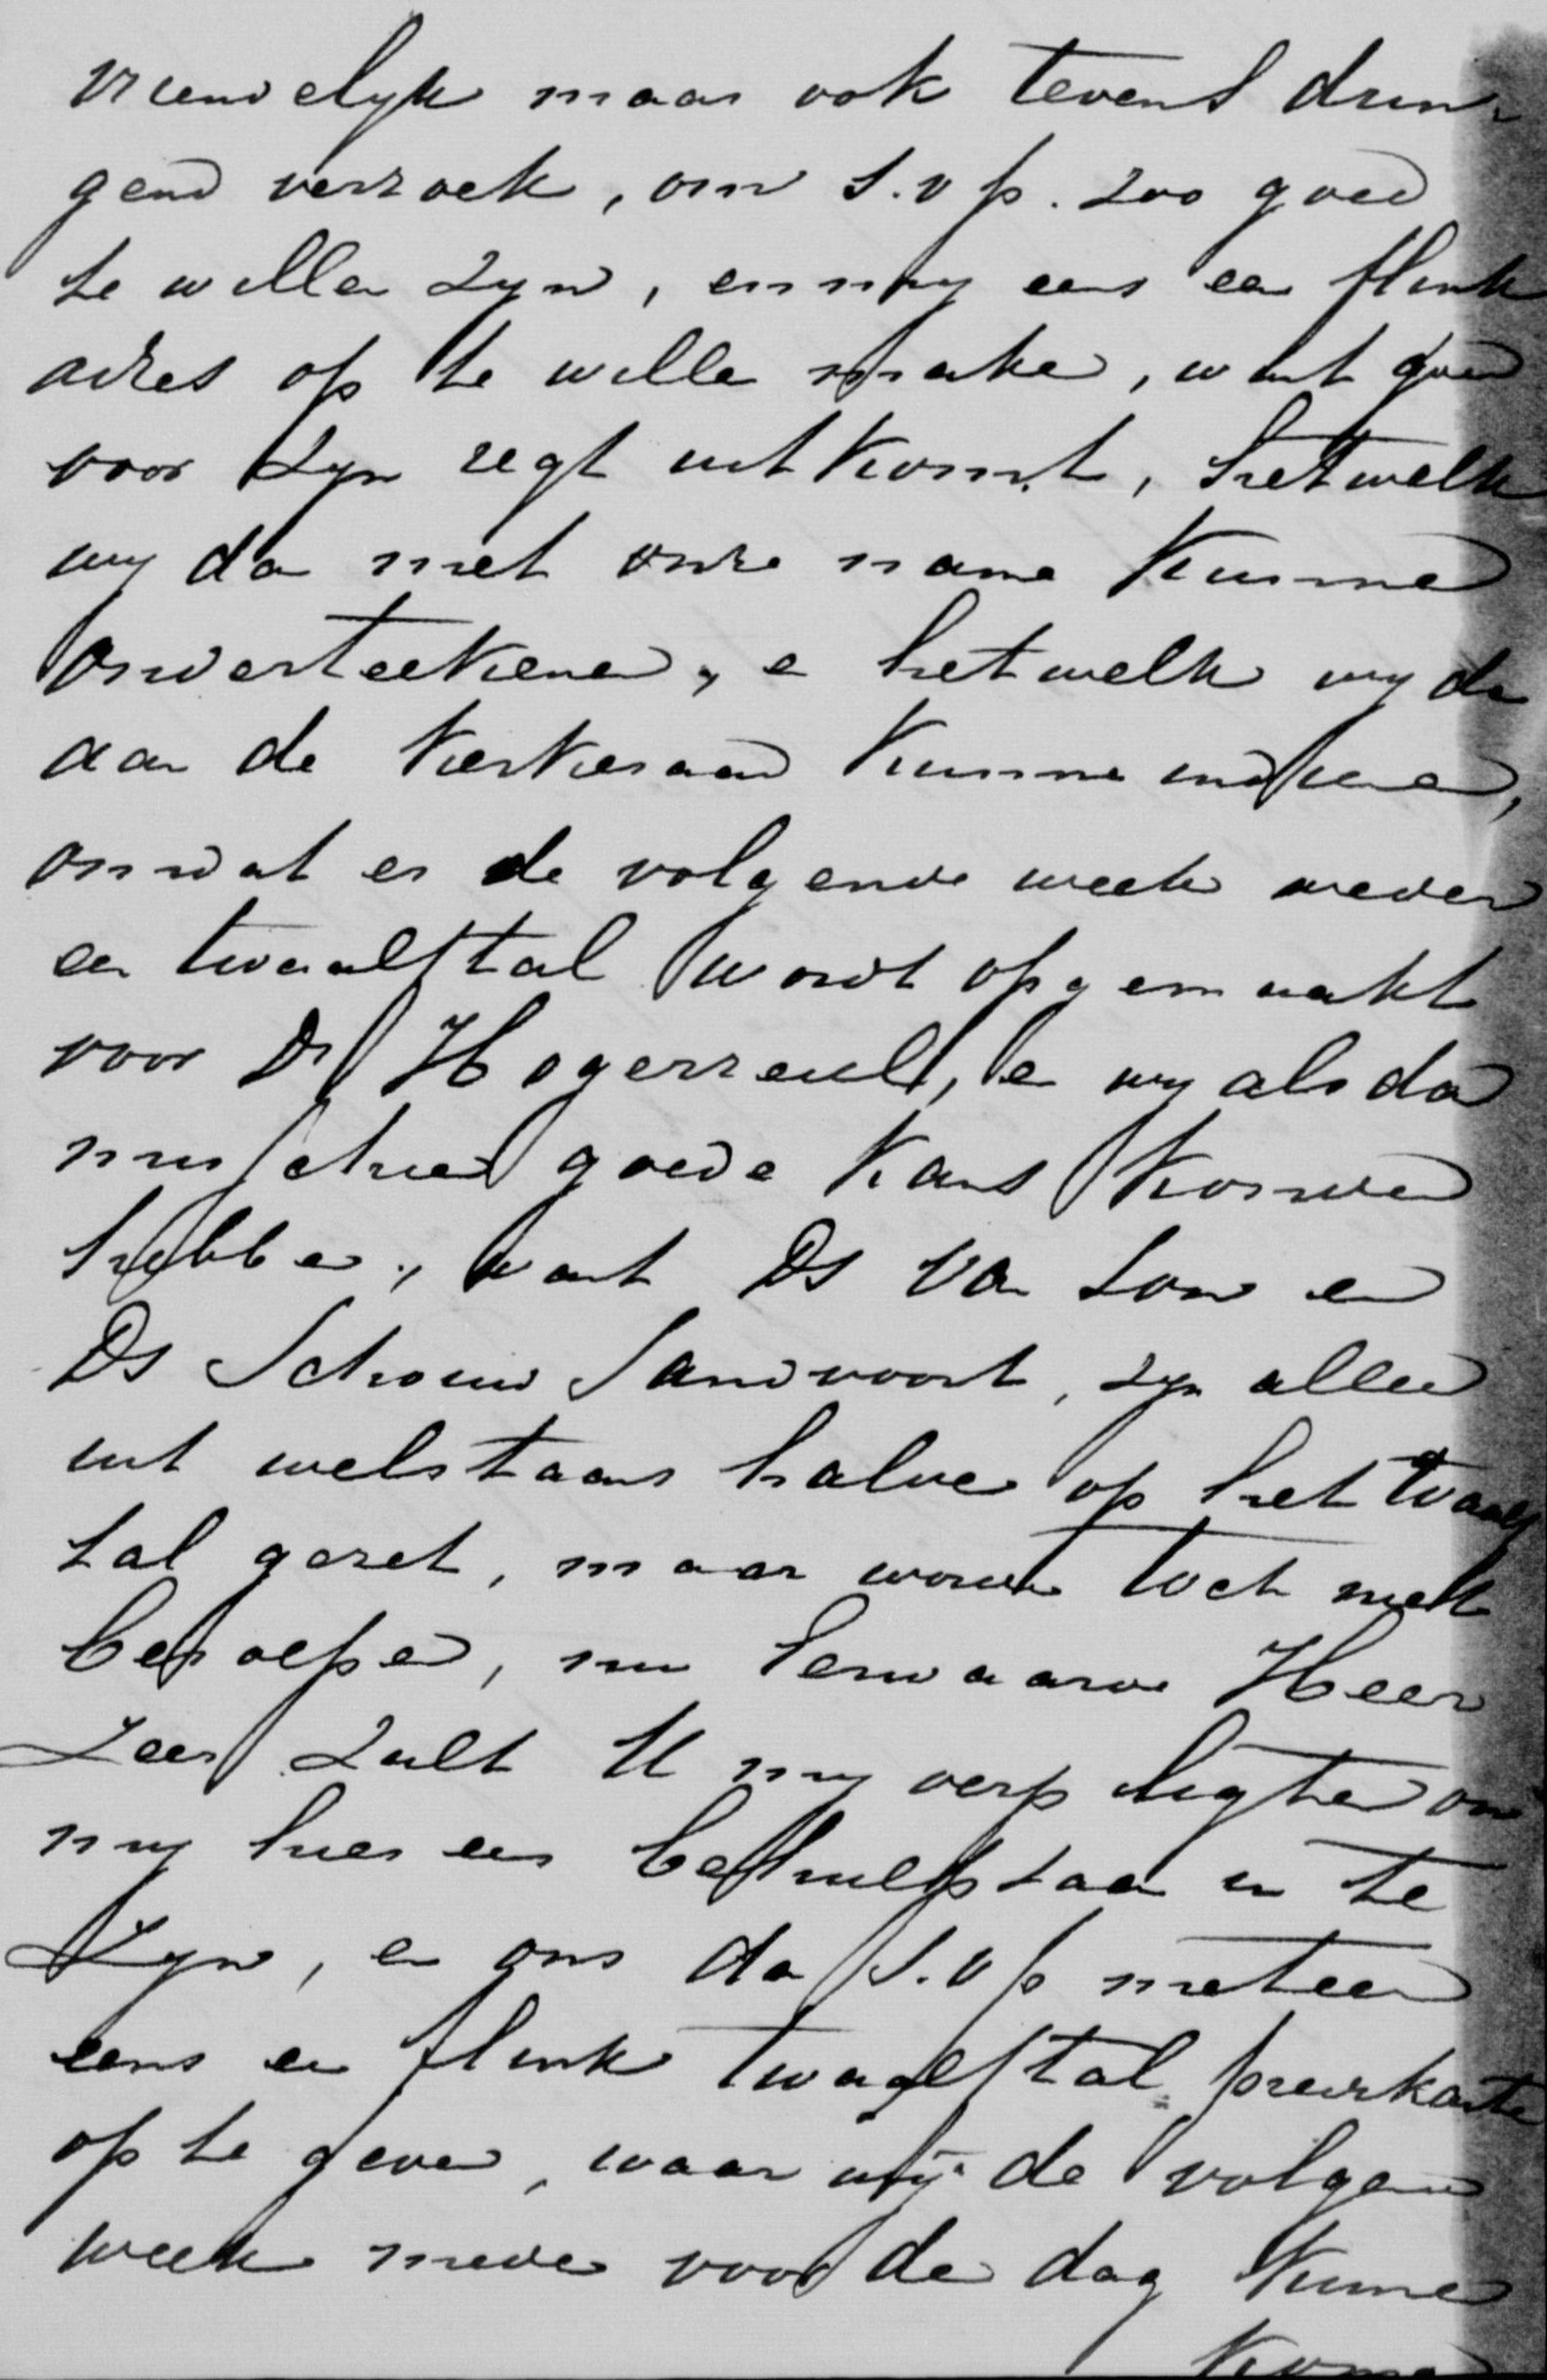 vriendelyk maar ook tevens drin
gend verzoek, om s.v.p. zoo goed
te wille zyn, en my eens een flink
adres op te wille make, wat goed
voor zyn regt uitkomt, hetwelk
wy dan met onze name kunne
onderteekenen, en hetwelk wy dan
aan de kerkeraad kunne indiene,
omdat er de volgende week weder
een twaalftal wordt opgemaakt
voor Ds Hogerzeil, en wy als dan
misschien goede kans konden
hebben, want Ds van Son en
Ds Schouw Sandvoort, zyn alleen
uit welstaans halve op het twaalf
tal gezet, maar worden toch niet
beroepen, nu Eerwaarde Heer
Zeer zult U my verpligten om
my hier een behulpzaam in te
zyn, en ons dan s.v.p meteen
eens een flink twaalftal predikante
op te geven, waar wij de volgend
week mede voor de dag kunne
kome